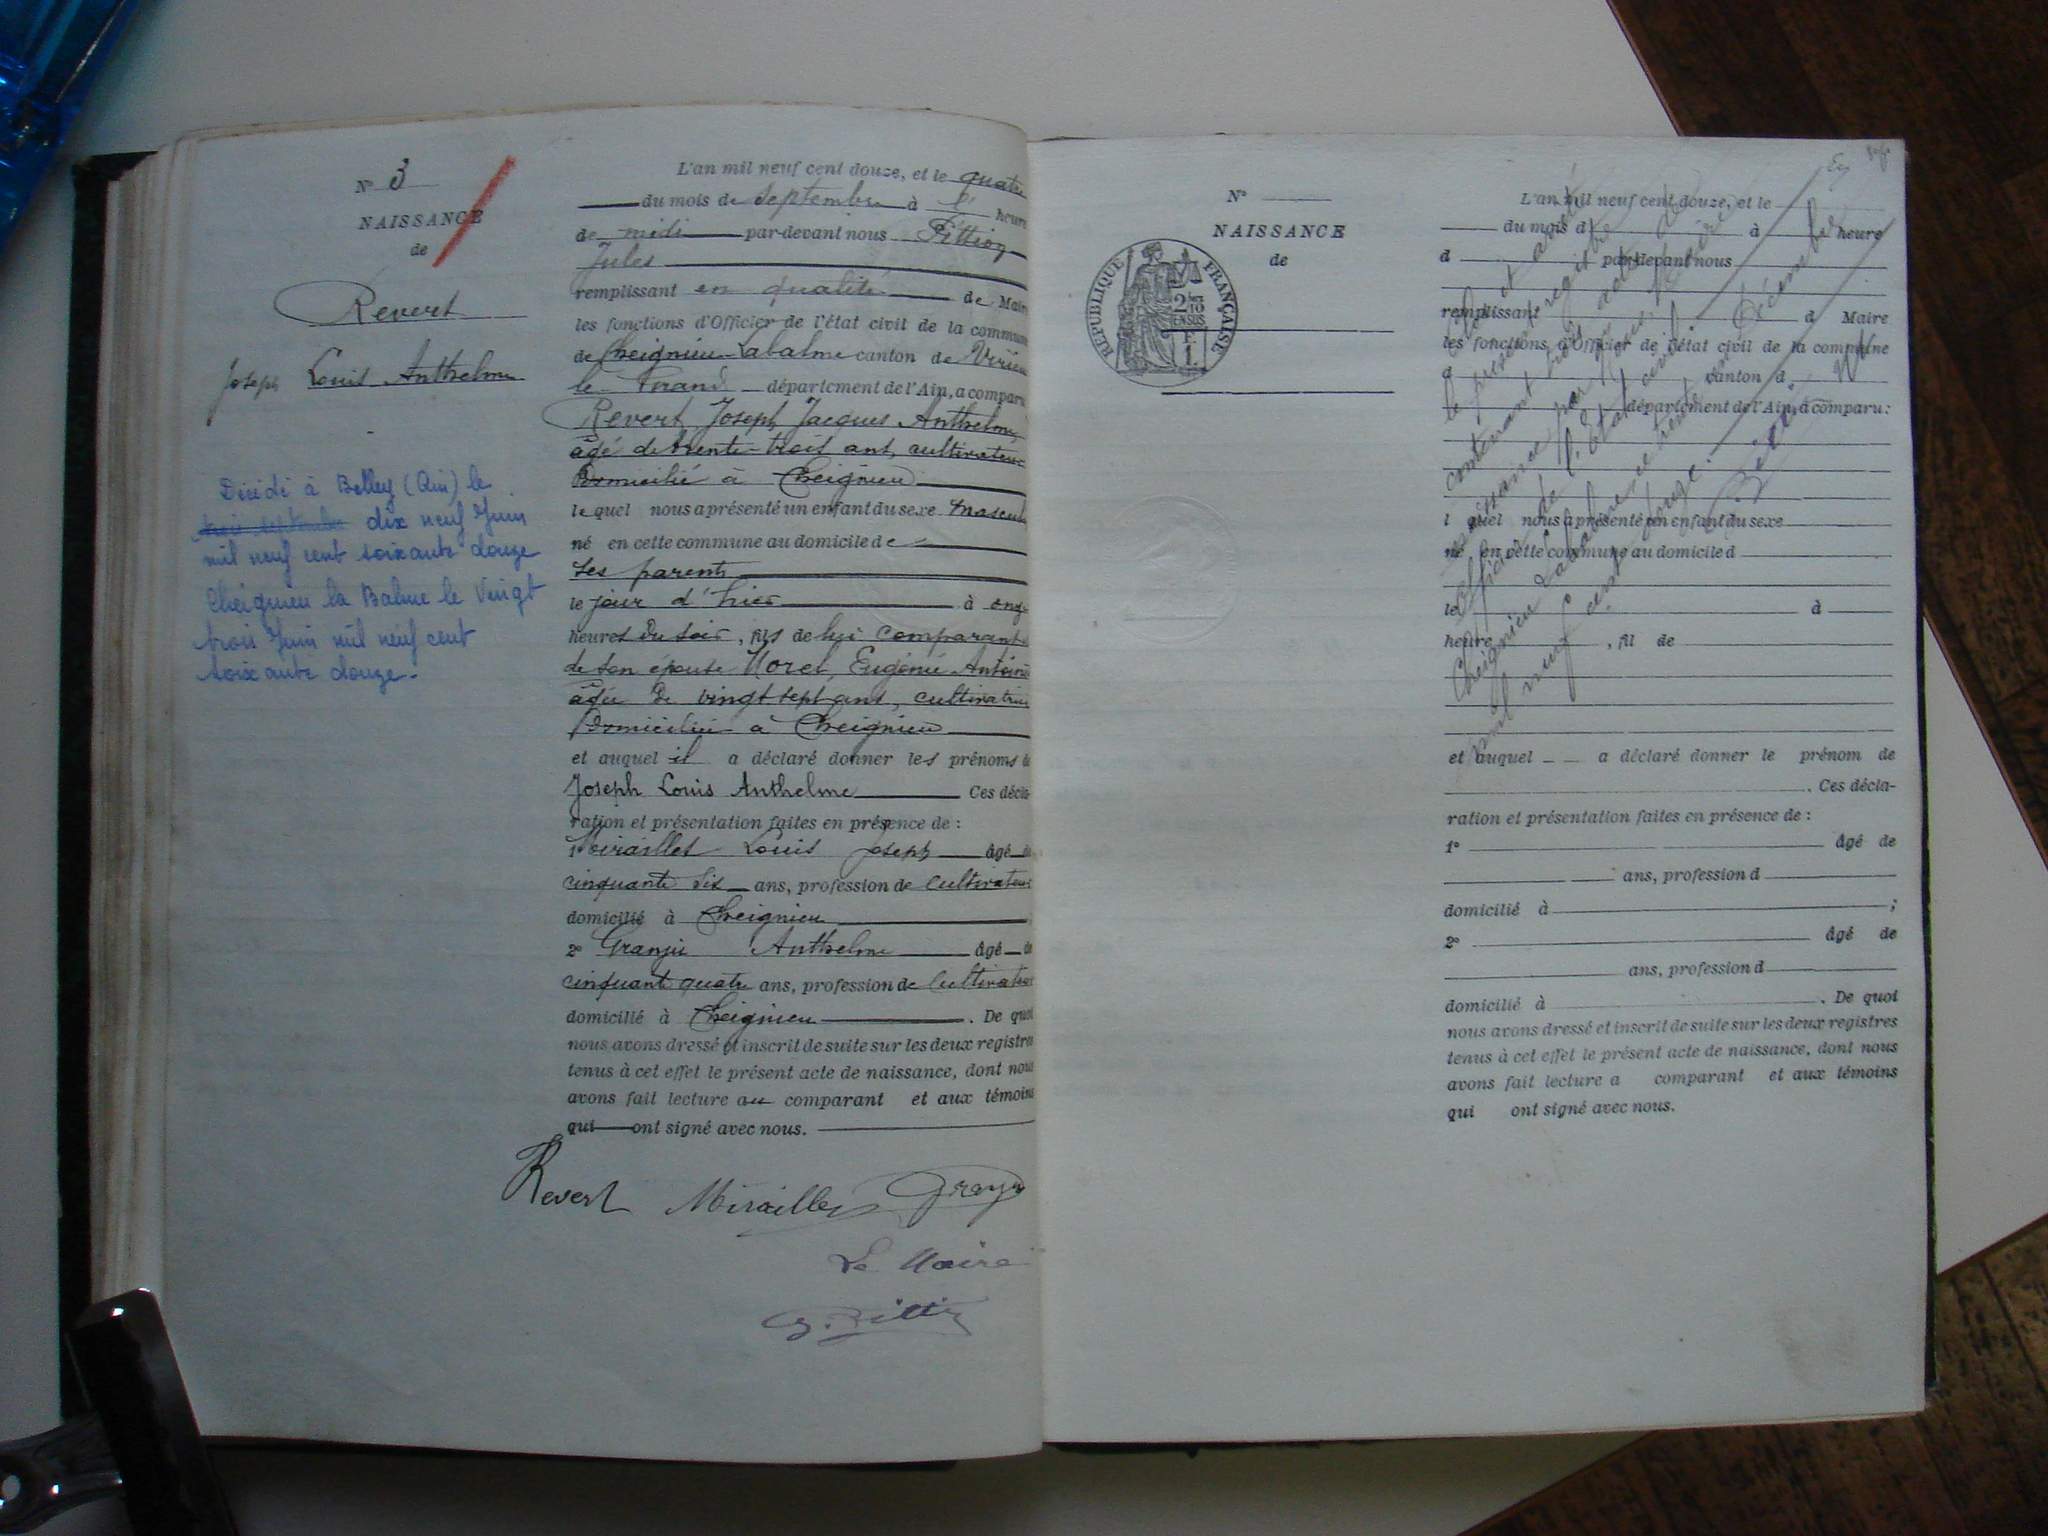 N° 3
NAISSANCE
de
Revert
Joseph Louis Anthelme
Décédé à Belley (Ain) le
dix neuf Juin
mil neuf cent soixante douze
Cheignieu la Balme le Vingt
trois Juin mil neuf cent
soixante douze.
L'an mil neuf cent douze, et le quatre
du mois de septembre à heure
de midi par-devant nous Pittion
Jules
remplissant en qualité de Maire
les fonctions d'Officier de l'état civil de la commune
de Cheignieu-Labalme canton de Virieu
le Grand département de l'Ain, a comparu
Revert Joseph Jacques Anthelme
âgé de trente-trois ans, cultivateur
Domicilié à Cheignieu
lequel nous a présenté un enfant du sexe mascul
né en cette commune au domicile de
ses parents
le jour d'hier à onze
heures du soir, fils de lui comparant
de son épouse Morel Eugénie Antoin
âgée de vingt sept ans, cultivatrice
Domiciliée à Cheignieu
et auquel il a déclaré donner les prénoms de
Joseph Louis Anthelme Ces décla-
ration et présentation faites en présence de :
1° Miraillet Louis Joseph âgé de
cinquante six ans, profession de cultivateur
domicilié à Cheignieu
2° Anthelme âgé de
cinquant quatre ans, profession de cultivateur
domicilié à Cheignieu . De quoi
nous avons dressé et inscrit de suite sur les deux registres
tenus à cet effet le présent acte de naissance, dont nous
avons fait lecture au comparant et aux témoins
qui ont signé avec nous.
Revert Miraillet
Le Maire
J. Pittion
N°
NAISSANCE
de
RÉPUBLIQUE FRANÇAISE
2/10 EN SUS
1 F.
L'an mil neuf cent douze, et le
du mois d à heure
d par-devant nous
remplissant d Maire
les fonctions d'Officier de l'état civil de la commune
d canton d
département de l'Ain, a comparu :
l quel nous a présenté un enfant du sexe
né en cette commune au domicile d
le à
heure , fil de
et auquel a déclaré donner le prénom de
. Ces décla-
ration et présentation faites en présence de :
1° âgé de
ans, profession d
domicilié à ;
2° âgé de
ans, profession d
domicilié à . De quoi
nous avons dressé et inscrit de suite sur les deux registres
tenus à cet effet le présent acte de naissance, dont nous
avons fait lecture a comparant et aux témoins
qui ont signé avec nous.
Clos et arrêté
le présent registre
contenant trois actes de
naissance par nous Maire
Officier de l'état civil
Cheignieu Labalme trente Décembre
mil neuf cent douze.